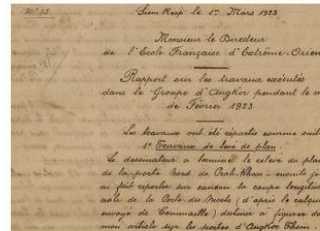 N° 15
Siem Reap le 1er Mars 1923
Monsieur le Directeur
de l'Ecole Française d'Extrême-Orien
Rapport sur les travaux exécutés
dans le Groupe d'Angkor pendant le m
de Février 1923
Les travaux ont été répartis comme suit
1° Travaux de levé de plan
Le dessinateur a terminé le relevé du plan
de la porte Nord de Prah Khan - ensuite je
ai fait reporter sur canson la coupe longitud
nale de la Porte des Morts (d'après le calque
envoyé de Commaille) destiné à figurer da
mon article sur les portes d'Angkor Thom.